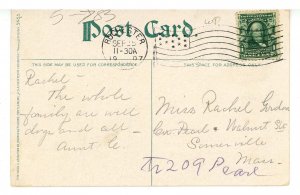 5-785
Post Card.
SEP 25
11-30A
1907
THIS SIDE MAY BE USED FOR CORRESPONDENCE.
THIS SPACE FOR ADDRESS.
Rachel -
The whole
family are well
dogs and all -
Aunt
Miss Rachel Gordon
Cor. Pearl & Walnut Sts
Somerville
Mass.
209 Pearl